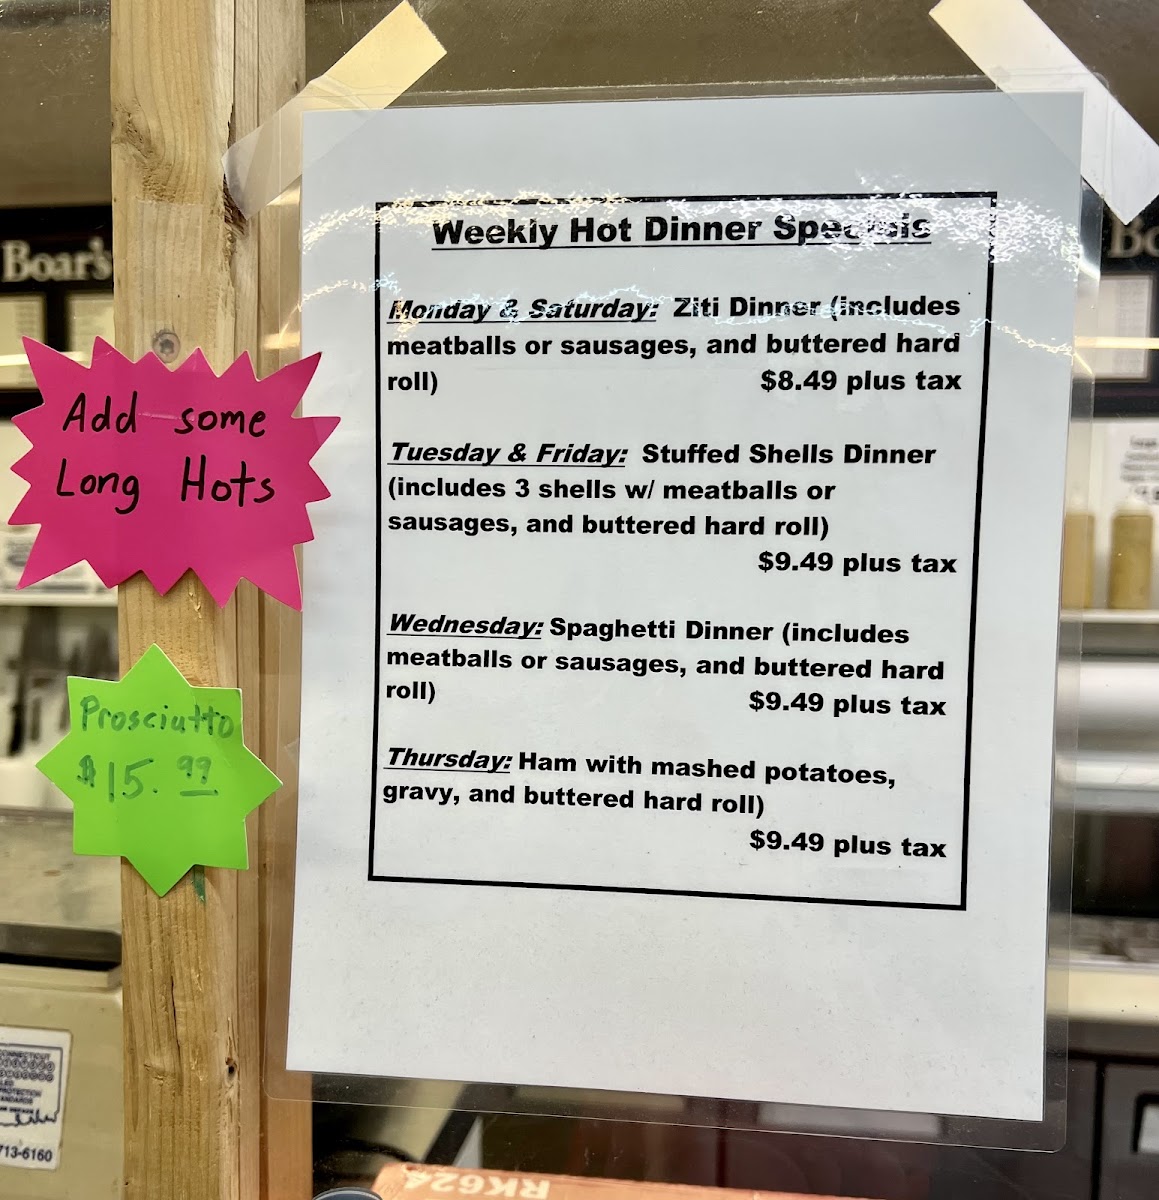 Boar's
Bo
Add some
Long Hots
Prosciutto
$15.99
Weekly Hot Dinner Specials
Monday & Saturday: Ziti Dinner (includes
meatballs or sausages, and buttered hard
roll) $8.49 plus tax
Tuesday & Friday: Stuffed Shells Dinner
(includes 3 shells w/ meatballs or
sausages, and buttered hard roll)
$9.49 plus tax
Wednesday: Spaghetti Dinner (includes
meatballs or sausages, and buttered hard
roll) $9.49 plus tax
Thursday: Ham with mashed potatoes,
gravy, and buttered hard roll)
$9.49 plus tax
713-6160
RK624